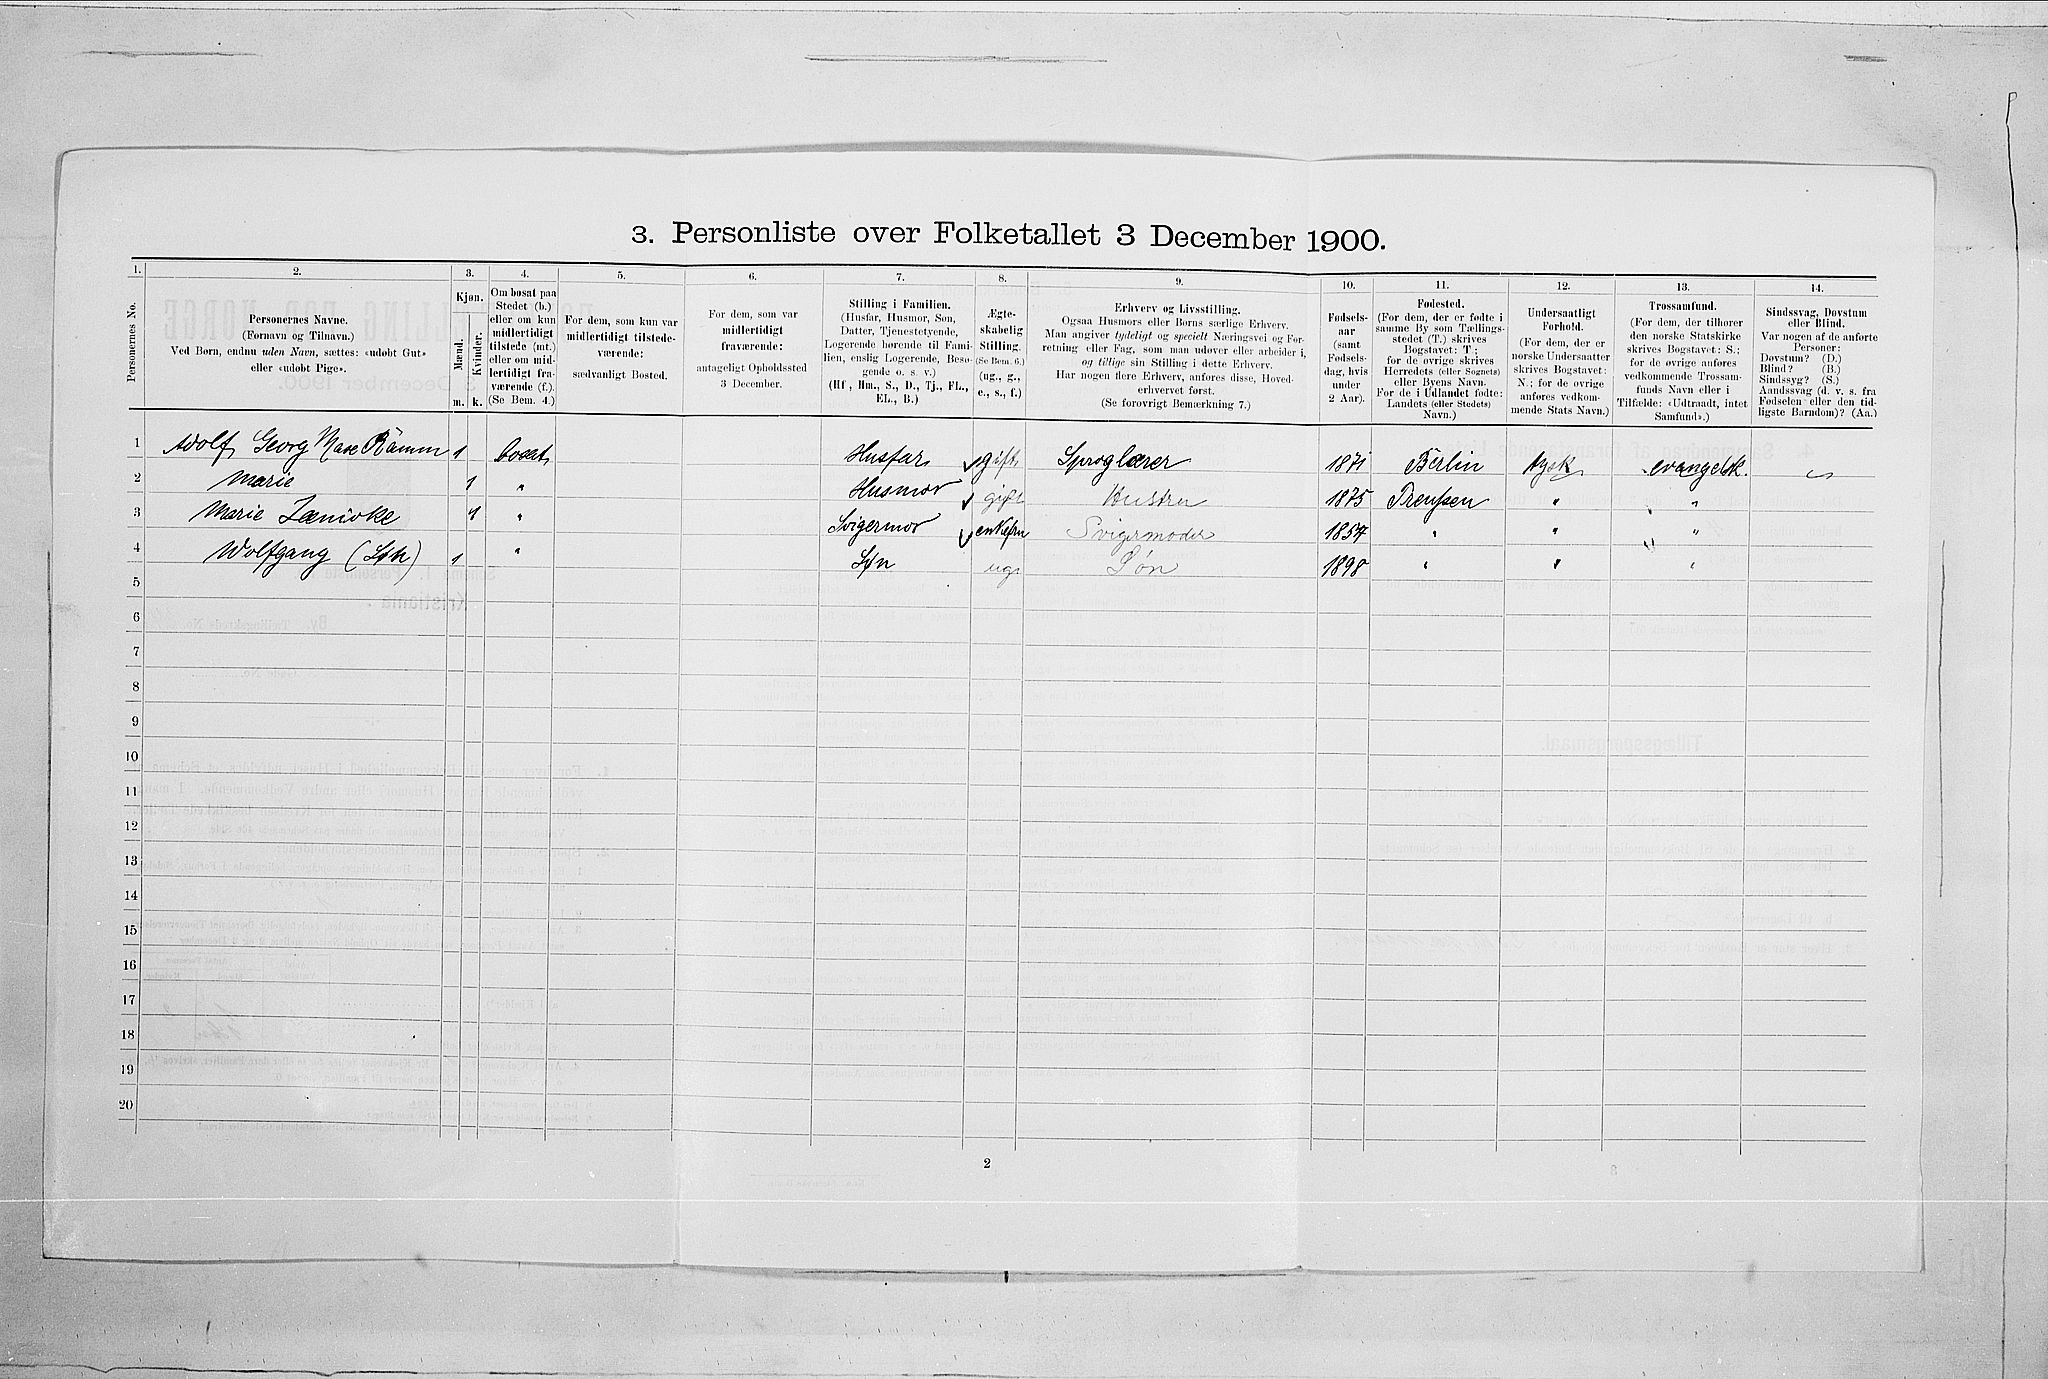 3. Personliste over Folketallet 3 December 1900.
1. 2. 3. 4. 5. 6. 7. 8. 9. 10. 11. 12. 13. 14.
Personernes No.
Personernes Navne.
(Fornavn og Tilnavn.)
Ved Børn, endnu uden Navn, sættes: «udøbt Gut»
eller «udøbt Pige».
Kjøn.
Mænd.
Kvinder.
m. k.
Om bosat paa
Stedet (b.)
eller om kun
midlertidigt
tilstede (mt.)
eller om mid-
lertidigt fra-
værende (f.).
(Se Bem. 4.)
For dem, som kun var
midlertidigt tilstede-
værende:
sædvanligt Bosted.
For dem, som var
midlertidigt
fraværende:
antageligt Opholdssted
3 December.
Stilling i Familien.
(Husfar, Husmor, Søn,
Datter, Tjenestetyende,
Logerende hørende til Fami-
lien, enslig Logerende, Besø-
gende o. s. v.)
(Hf, Hm., S., D., Tj., FL.,
EL., B.)
Ægte-
skabelig
Stilling.
(Se Bem. 6.)
(ug., g.,
e., s., f.)
Erhverv og Livsstilling.
Ogsaa Husmors eller Børns særlige Erhverv.
Man angiver tydeligt og specielt Næringsvei og For-
retning eller Fag, som man udøver eller arbeider i,
og tillige sin Stilling i dette Erhverv.
Har nogen flere Erhverv, anføres disse, Hoved-
erhvervet først.
(Se forøvrigt Bemærkning 7.)
Fødsels-
aar
(samt
Fødsels-
dag, hvis
under
2 Aar).
Fødested.
(For dem, der er fødte i
samme By som Tællings-
stedet (T.) skrives
Bogstavet: T.;
for de øvrige skrives
Herredets (eller Sognets)
eller Byens Navn.
For de i Udlandet fødte:
Landets (eller Stedets)
Navn.)
Undersaatligt
Forhold.
(For dem, der er
norske Undersaatter
skrives Bogstavet:
N.; for de øvrige
anføres vedkom-
mende Stats Navn.)
Trossamfund.
(For dem, der tilhører
den norske Statskirke
skrives Bogstavet: S.;
for de øvrige anføres
vedkommende Trossam-
funds Navn eller i
Tilfælde: «Udtraadt, intet
Samfund».)
Sindssvag, Døvstum
eller Blind.
Var nogen af de anførte
Personer:
Døvstum? (D.)
Blind? (B.)
Sindssyg? (S.)
Aandssvag (d. v. s. fra
Fødselen eller den tid-
ligste Barndom)? (Aa.)
1 Adolf Georg Max Ramm 1 bosat Husfar gift Sproglærer 1871 Berlin tysk evangelsk.
2 Marie 1 " Husmor gift Hustru 1875 Preussen " "
3 Marie Jænicke 1 " Svigermor enkefru Svigermoder 1854 " " "
4 Wolfgang (Søn) 1 " Søn ug. Søn 1898 " " "
5
6
7
8
9
10
11
12
13
14
15
16
17
18
19
20
2